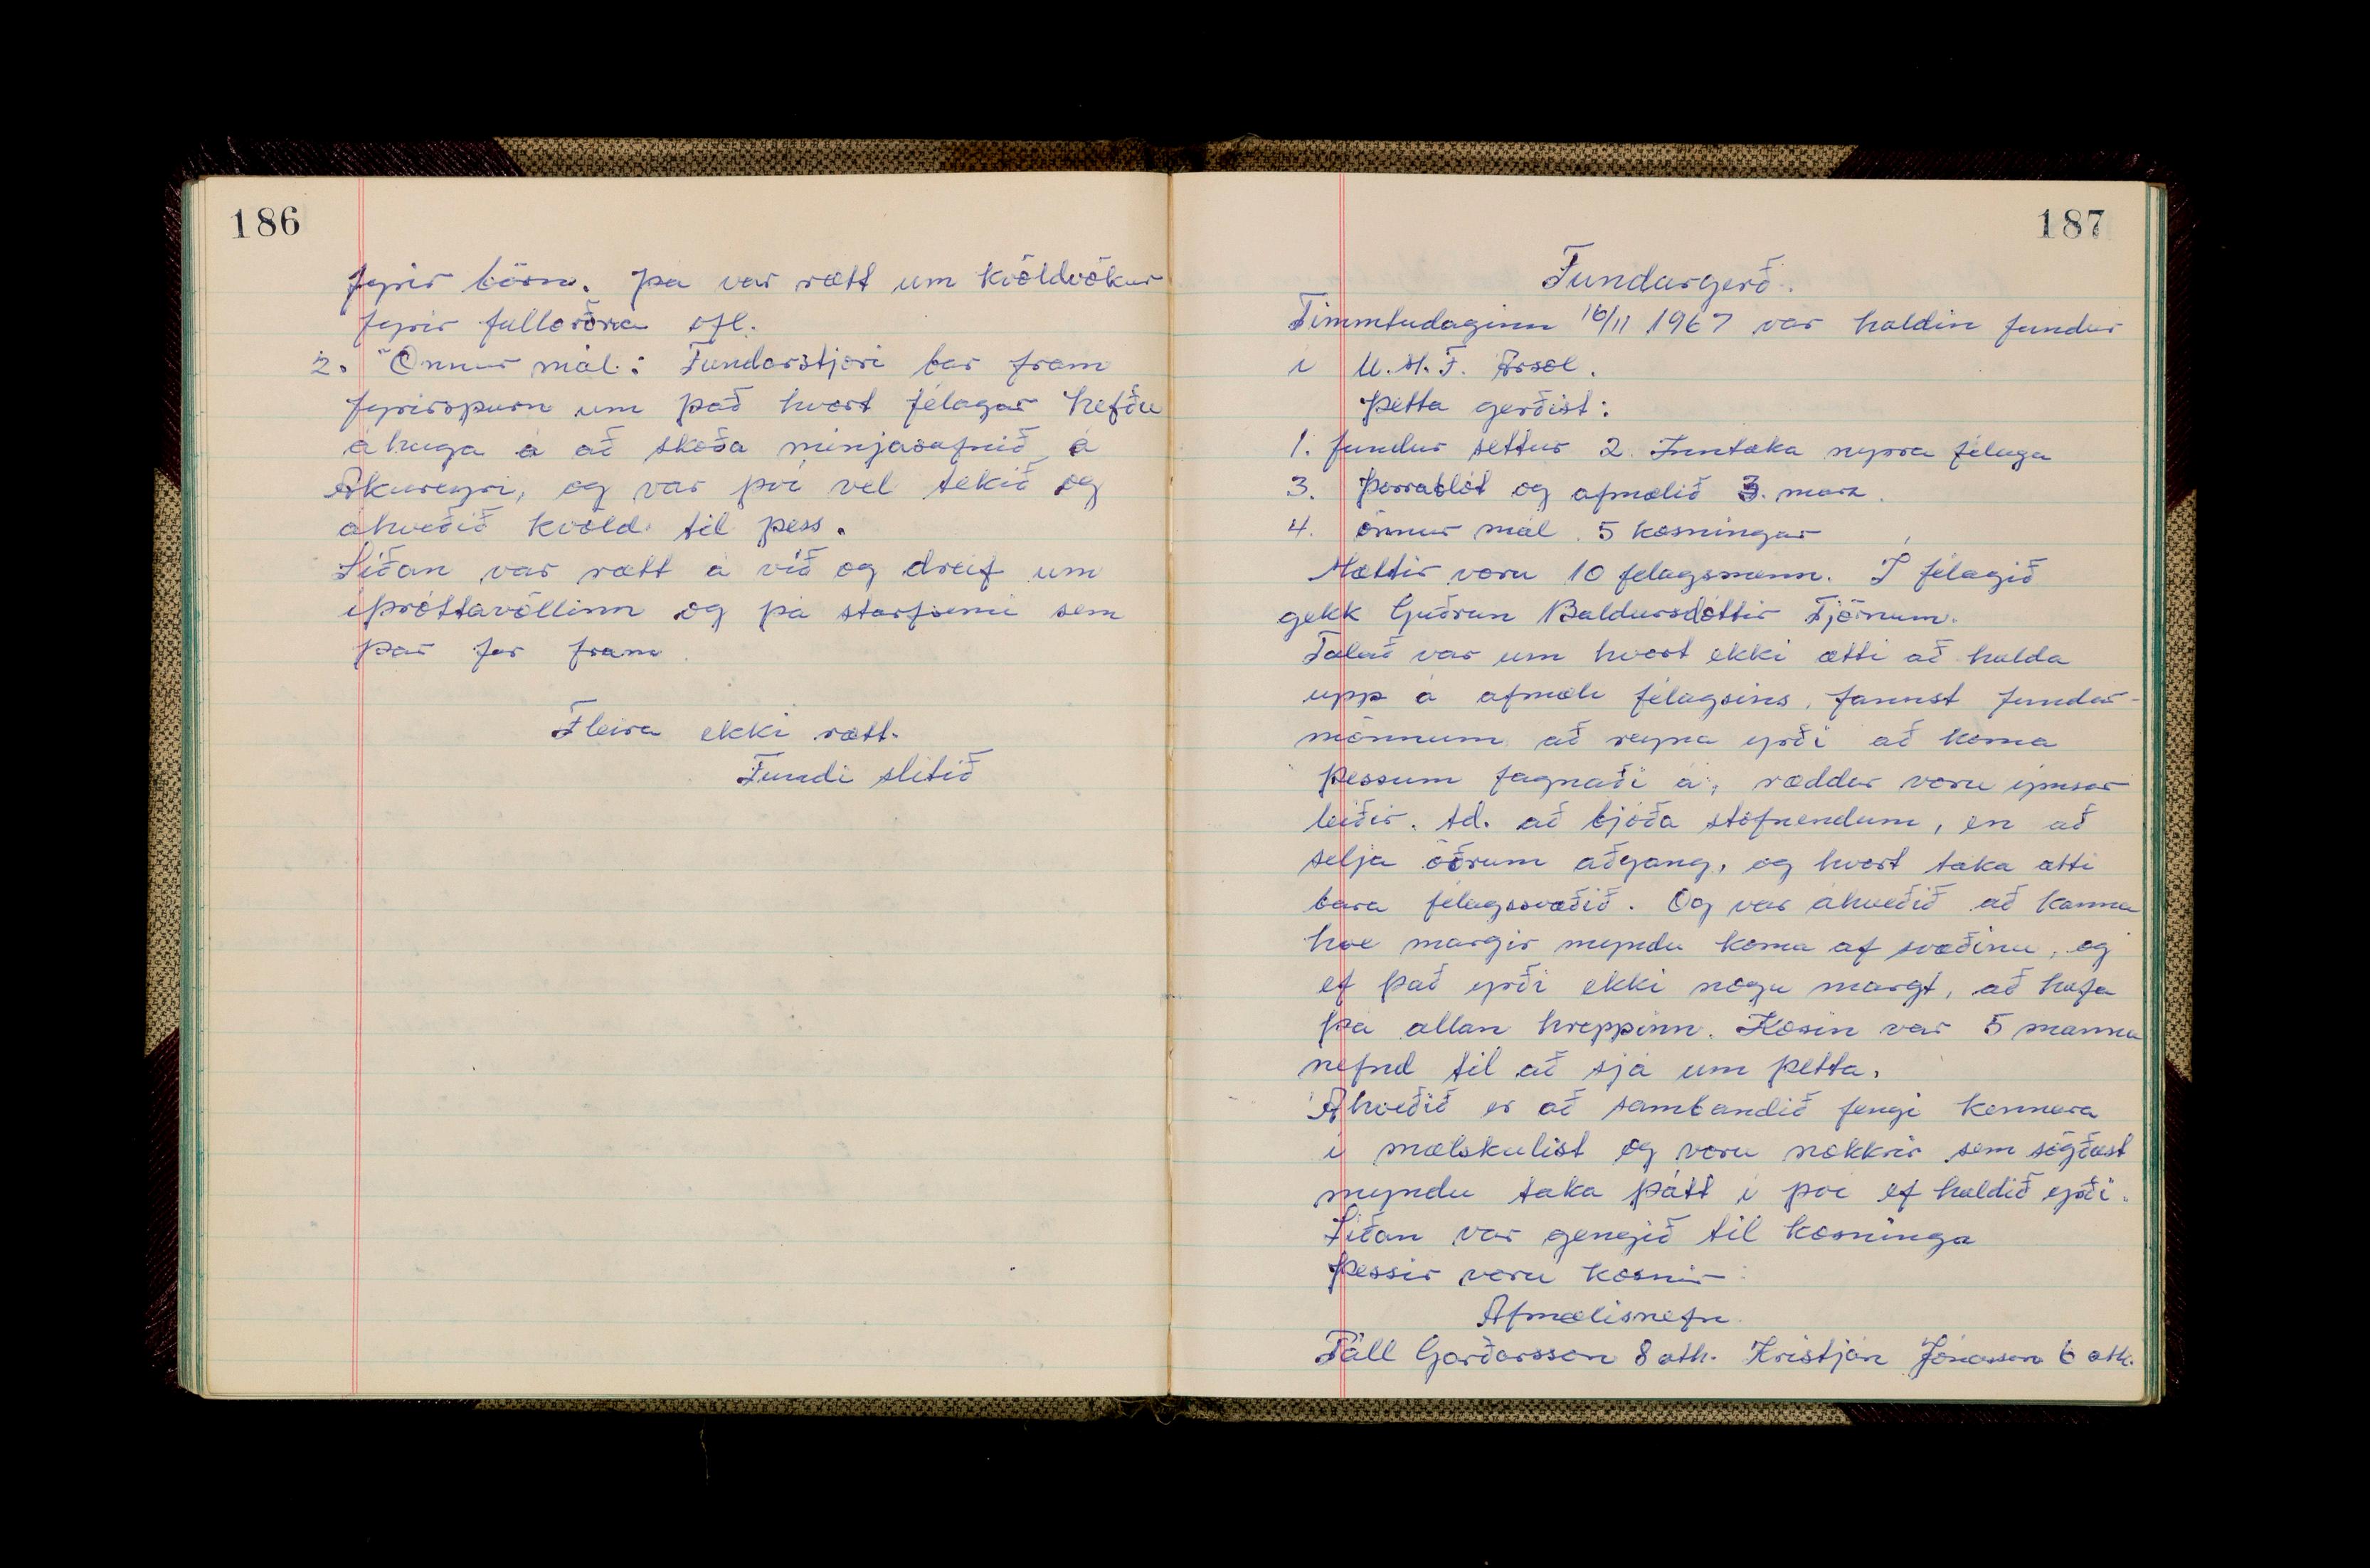 186
fyrir börn. þá var rætt um kvöldvökur
fyrir fullorðna ofl.
2. Önnur mál: Fundarstjóri bar fram
fyrirspurn um það hvort félagar hefðu
áhuga á að skoða minjasafnið á
Akureyri, og var því vel tekið og
ákveðið kvöld til þess.
Síðan var rætt á víð og dreif um
íþróttavöllinn og þá starfsemi sem
þar fer fram.
Fleira ekki rætt.
Fundi slitið
187
Fundargerð.
Fimmtudaginn 16/11 1967 var haldin fundur
í U.M.F. Ársól.
Þetta gerðist:
1. fundur settur 2. Inntaka nýrra félaga
3. Þorrablót og afmælið 3. marz.
4. önnur mál. 5 kosningar
Mættir voru 10 félagsmenn. Í félagið
gekk Guðrún Baldursdóttir Tjörnum.
Talað var um hvort ekki ætti að halda
upp á afmæli félagsins, fannst fundar-
mönnum að reyna yrði að koma
þessum fagnaði á, ræddar voru ýmsar
leiðir. td. að bjóða stofnendum, en að
selja öðrum aðgang, og hvort taka ætti
bara félagssvæðið. Og var ákveðið að kanna
hve margir myndu koma af svæðinu, og
ef það yrði ekki nógu margt, að hafa
þá allan hreppinn. Kosin var 5 manna
nefnd til að sjá um þetta.
Ákveðið er að sambandið fengi kennara
í mælskulist og voru nokkrir sem sögðust
myndu taka þátt í því ef haldið yrði.
Síðan var gengið til kosninga
Þessir voru kosnir:
Afmælisnefn
Páll Garðarsson 8 atk. Kristján Jónasson 6 atk.